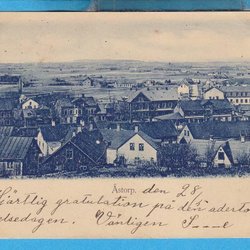 Åstorp. den 28
S....
Hjärtlig gratulation på den aderto
elsedagen. Vänligen S....